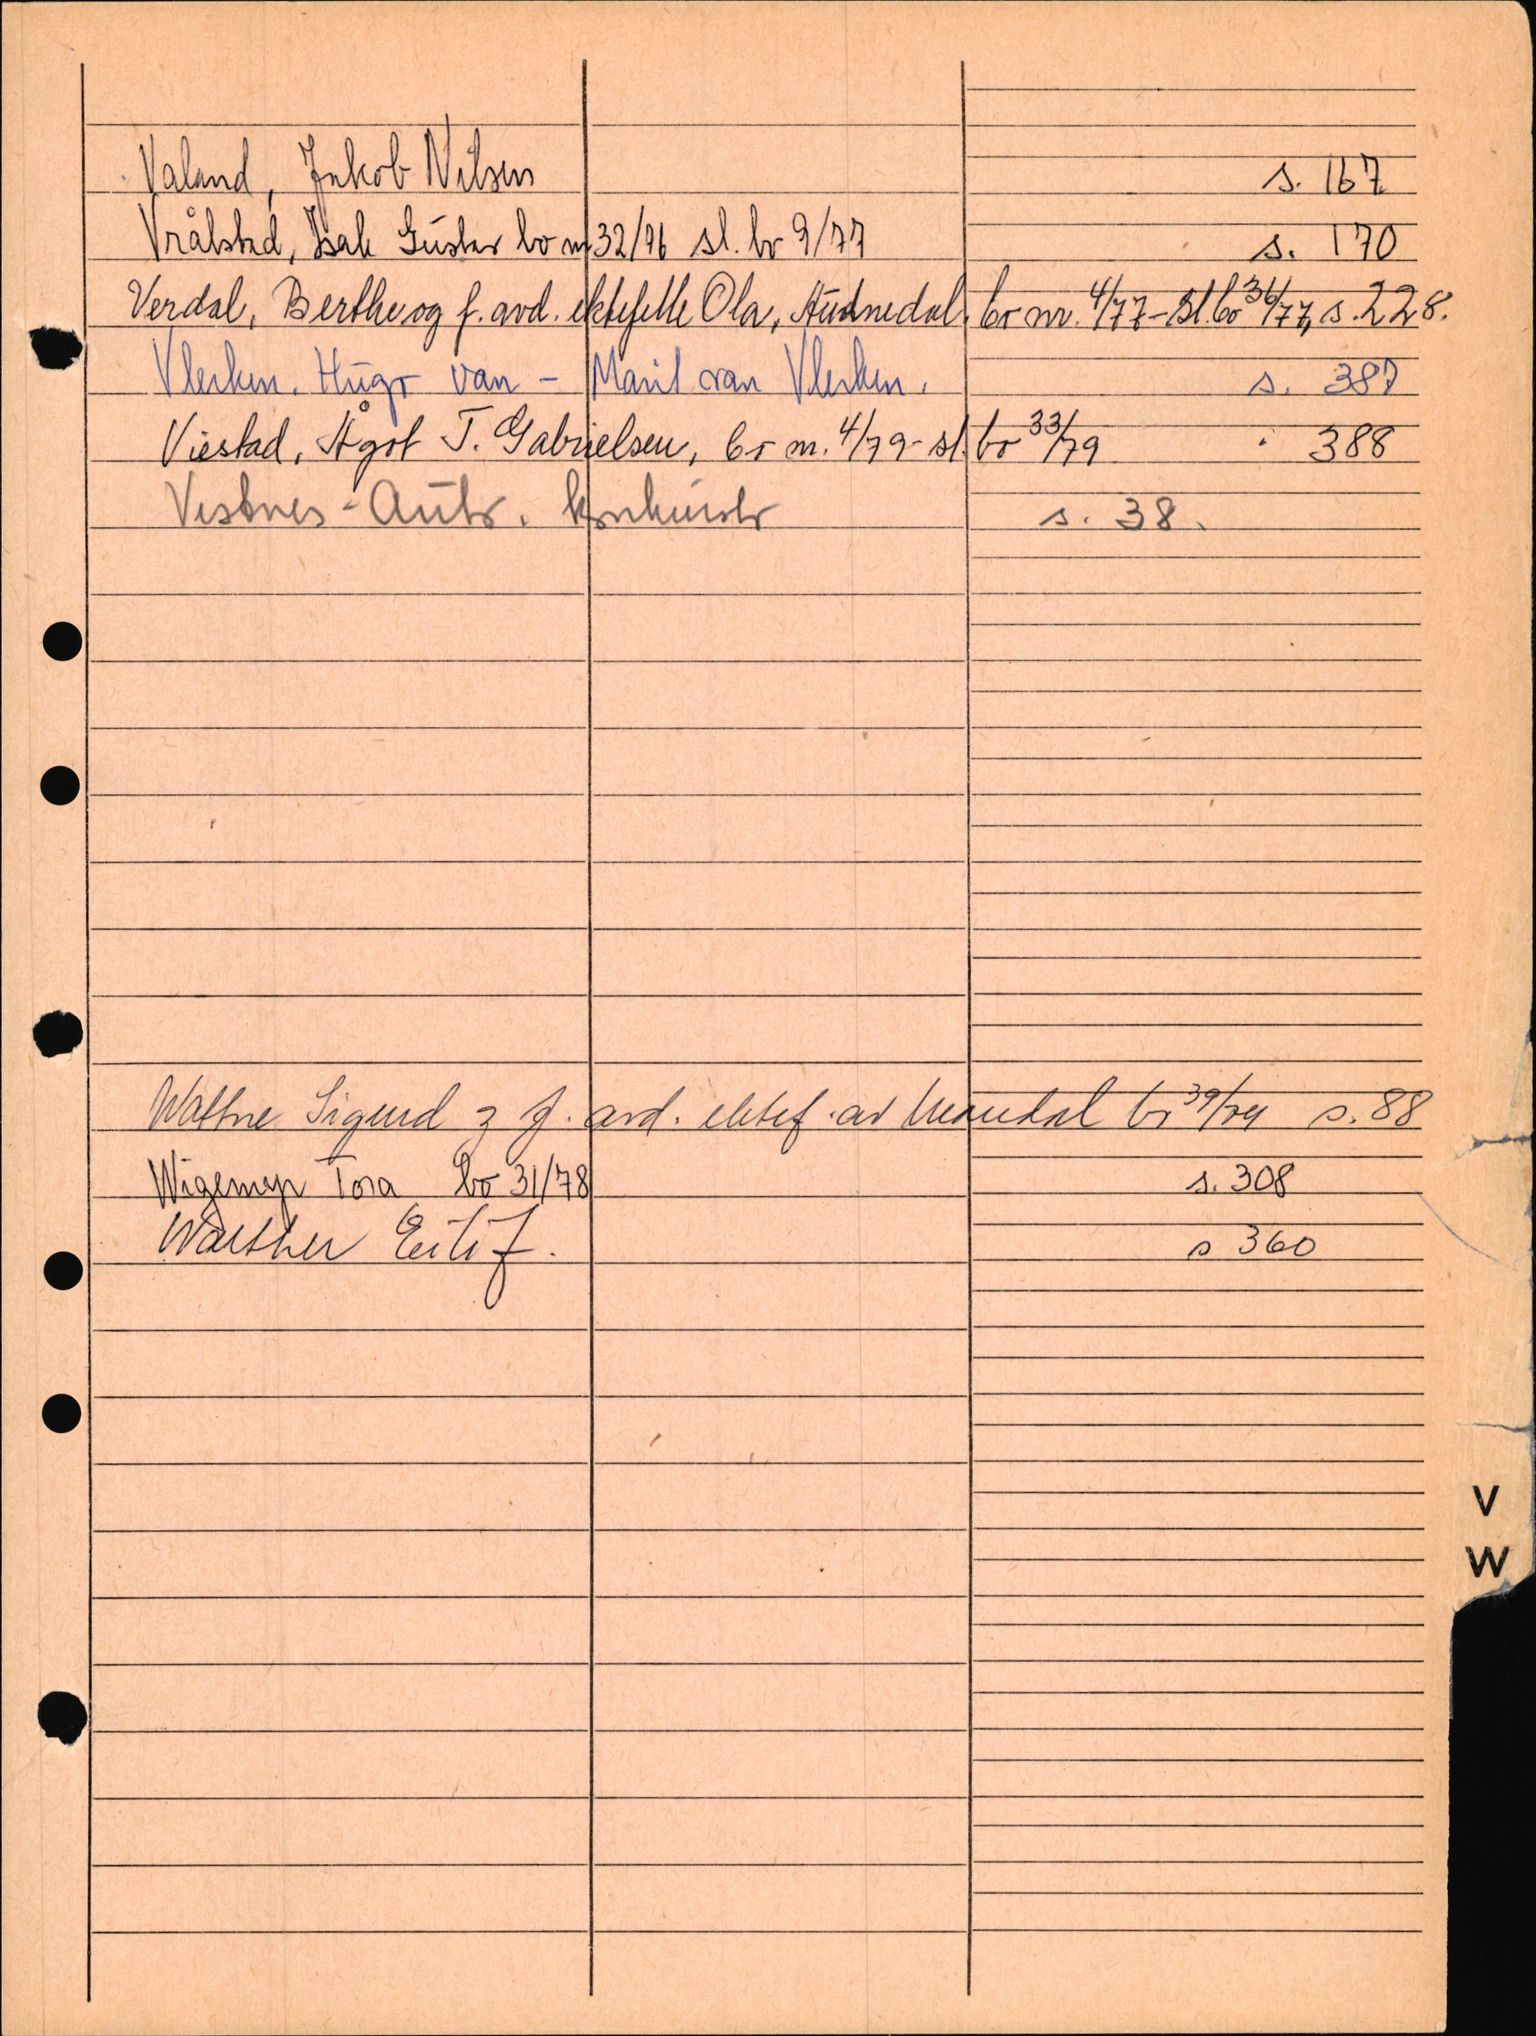 Valand, Jakob Nilsen s. 167
Vrålstad, Isak Gustav bo nr 32/76 sl. bo 9/77 s. 170
Verdal, Berthe og f. avd. ektefelle Ola, Audnedal. bo nr. 4/77 - sl. bo 36/77, s. 228.
Vlerken, Hugo van - Marit van Vlerken. s. 387
Viestad, Ågot T. Gabrielsen, bo nr. 4/79 - sl. bo 33/79 388
Vestnes - Auto. konkursbo s. 38.
Wattne Sigurd og f. avd. ektef. av Mandal bo 39/74 s. 88
Wigemyr Tora bo 31/78 s. 308
Walther Eilif. s 360
V
W